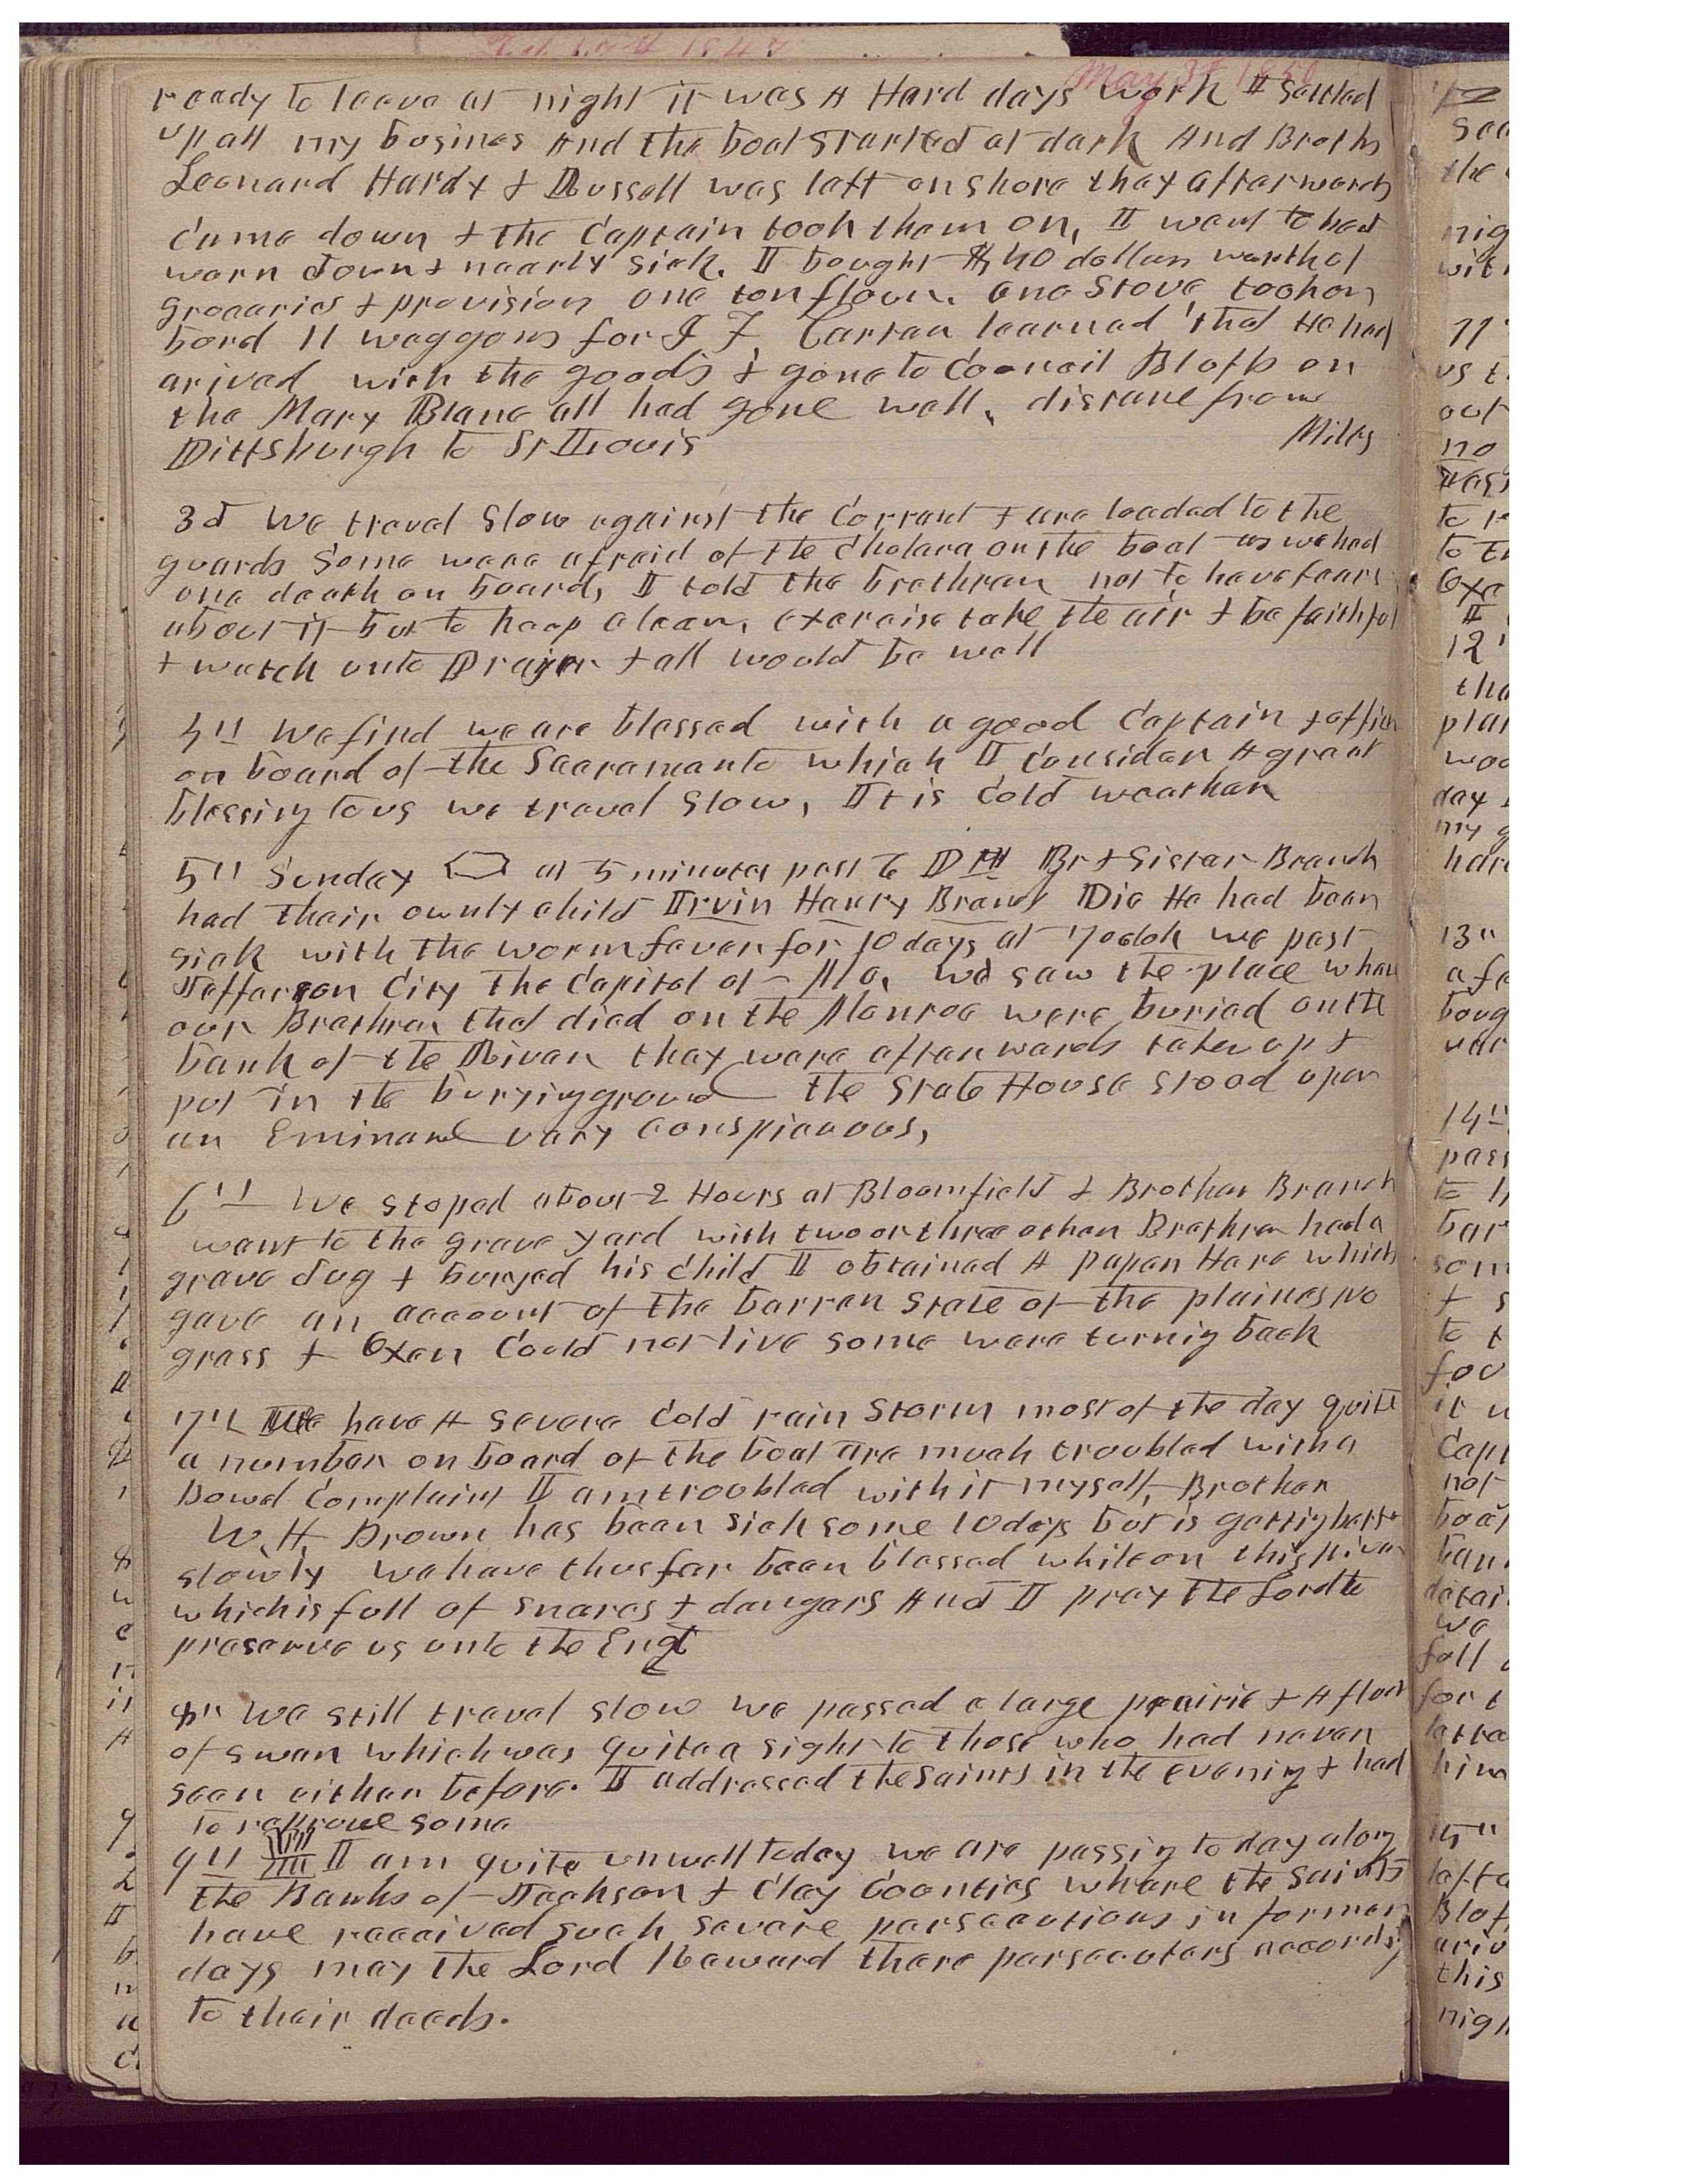 May 3d 1850
ready to leave at night it was A Hard days work I settled
up all my business And the boat started at dark And Broths
Leonard Hardy & Russell was left on shore they afterwards
came down & the Captain took them on, I went to bed
worn down & nearly sick. I bought $40 dollars worth of
groceries & provision one ton flour. one Stove, took on
bord 11 waggons for J F Carter learned that He had
arived with the goods & gone to Council Bluffs on
the Mary Blane all had gone well, distance from
Pittsburgh to St Louis Miles
3d We travel slow against the Corrant & are loaded to the
guards Some were afraid of the Cholera on the boat as we had
one death on board, I told the brethren not to have fears
about it but to keep clean, exercise take the air & be faithful
& watch unto Prayer & all would be well
4" We find we are blessed with a good Captain & officers
on board of the Sacramento which I Consider A great
blessing to us we travel slow, It is Cold weather
5" Sunday at 5 minutes past 6 PM Br & Sister Branch
had their ownly child Ervin Henry Branch Die He had been
sick with the worm fever for 10 days at 7 oclok we past
Jefferson City The Capitol of Mo, we saw the place whare
our Brethren that died on the Monroe were buried on the
bank of the River they ware afterwards taken up &
put in the burying ground the State House stood upon
an Eminance vary Conspicuous,
6" We stoped about 2 Hours at Bloomfield & Brother Branch
went to the grave yard with two or three other Brethren had a
grave dug & buryed his child I obtained A paper Here which
gave an account of the barren State of the plaines no
grass & Oxen Could not live some were turnig back
7" We have A severe Cold rain storm most of the day quite
a number on board of the boat are much troubled with a
Bowel Complaint I am troubled with it myself, Brother
W. H. Brown has been sick some 10 days but is gettig better
slowly we have thus far been blessed while on this river
which is full of snares & dangers And I pray the Lord to
preserve us unto the End
8" We still travel slow we passed a large prairie & A flock
of swan which was quite a sight to those who had never
seen either before. I addressed the Saints in the evenig & had
to reprove some
9" I am quite unwell today we are passig to day along
the Banks of Jackson & Clay Counties whare the Saints
have received such severe persecutions in former
days may the Lord Reward there persecutors accordig
to their deeds.